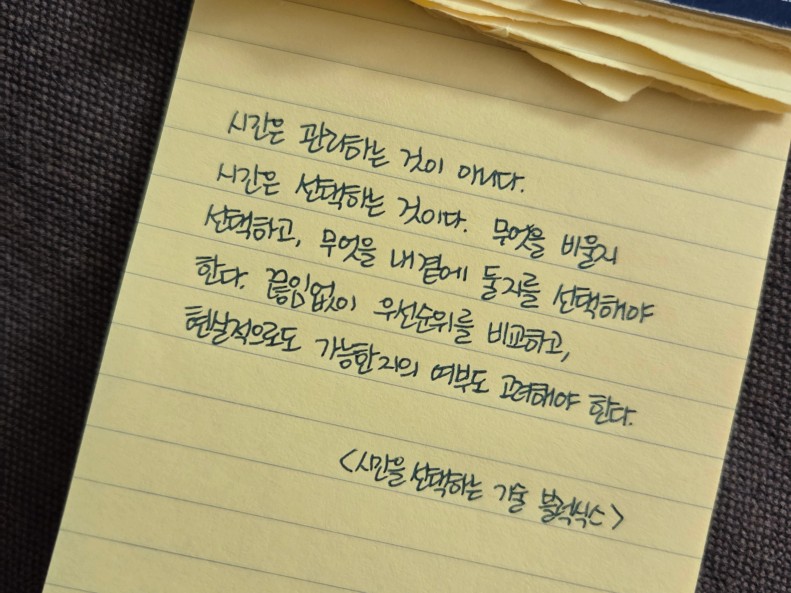 시간은 관리하는 것이 아니다.
시간은 선택하는 것이다. 무엇을 비울지
선택하고, 무엇을 내 곁에 둘지를 선택해야
한다. 끊임없이 우선순위를 비교하고,
현실적으로도 가능한지의 여부도 고려해야 한다.
<시간을 선택하는 기술 블럭식스>